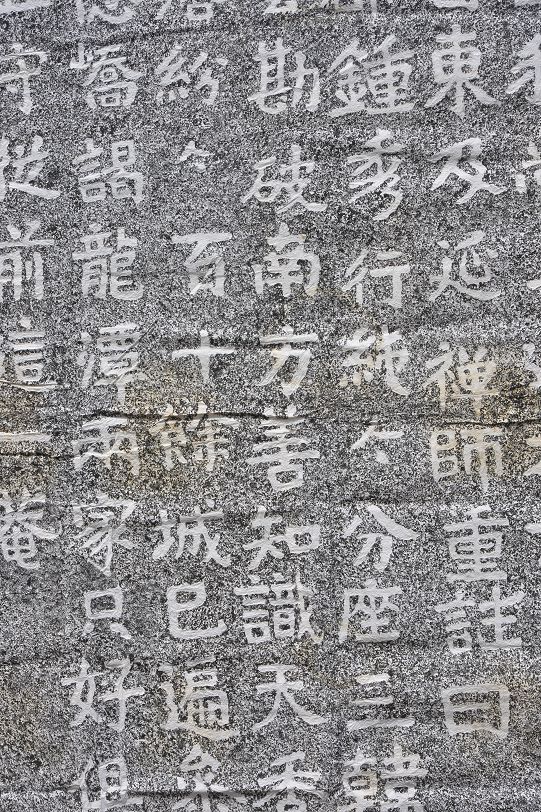 東及延禅師重註曰
鍾秀行純〻分座三韓
勘破南方善知識天香
紛〻百十餘城已遍参
嶠謁龍潭両家只好俱
守從前這一菴